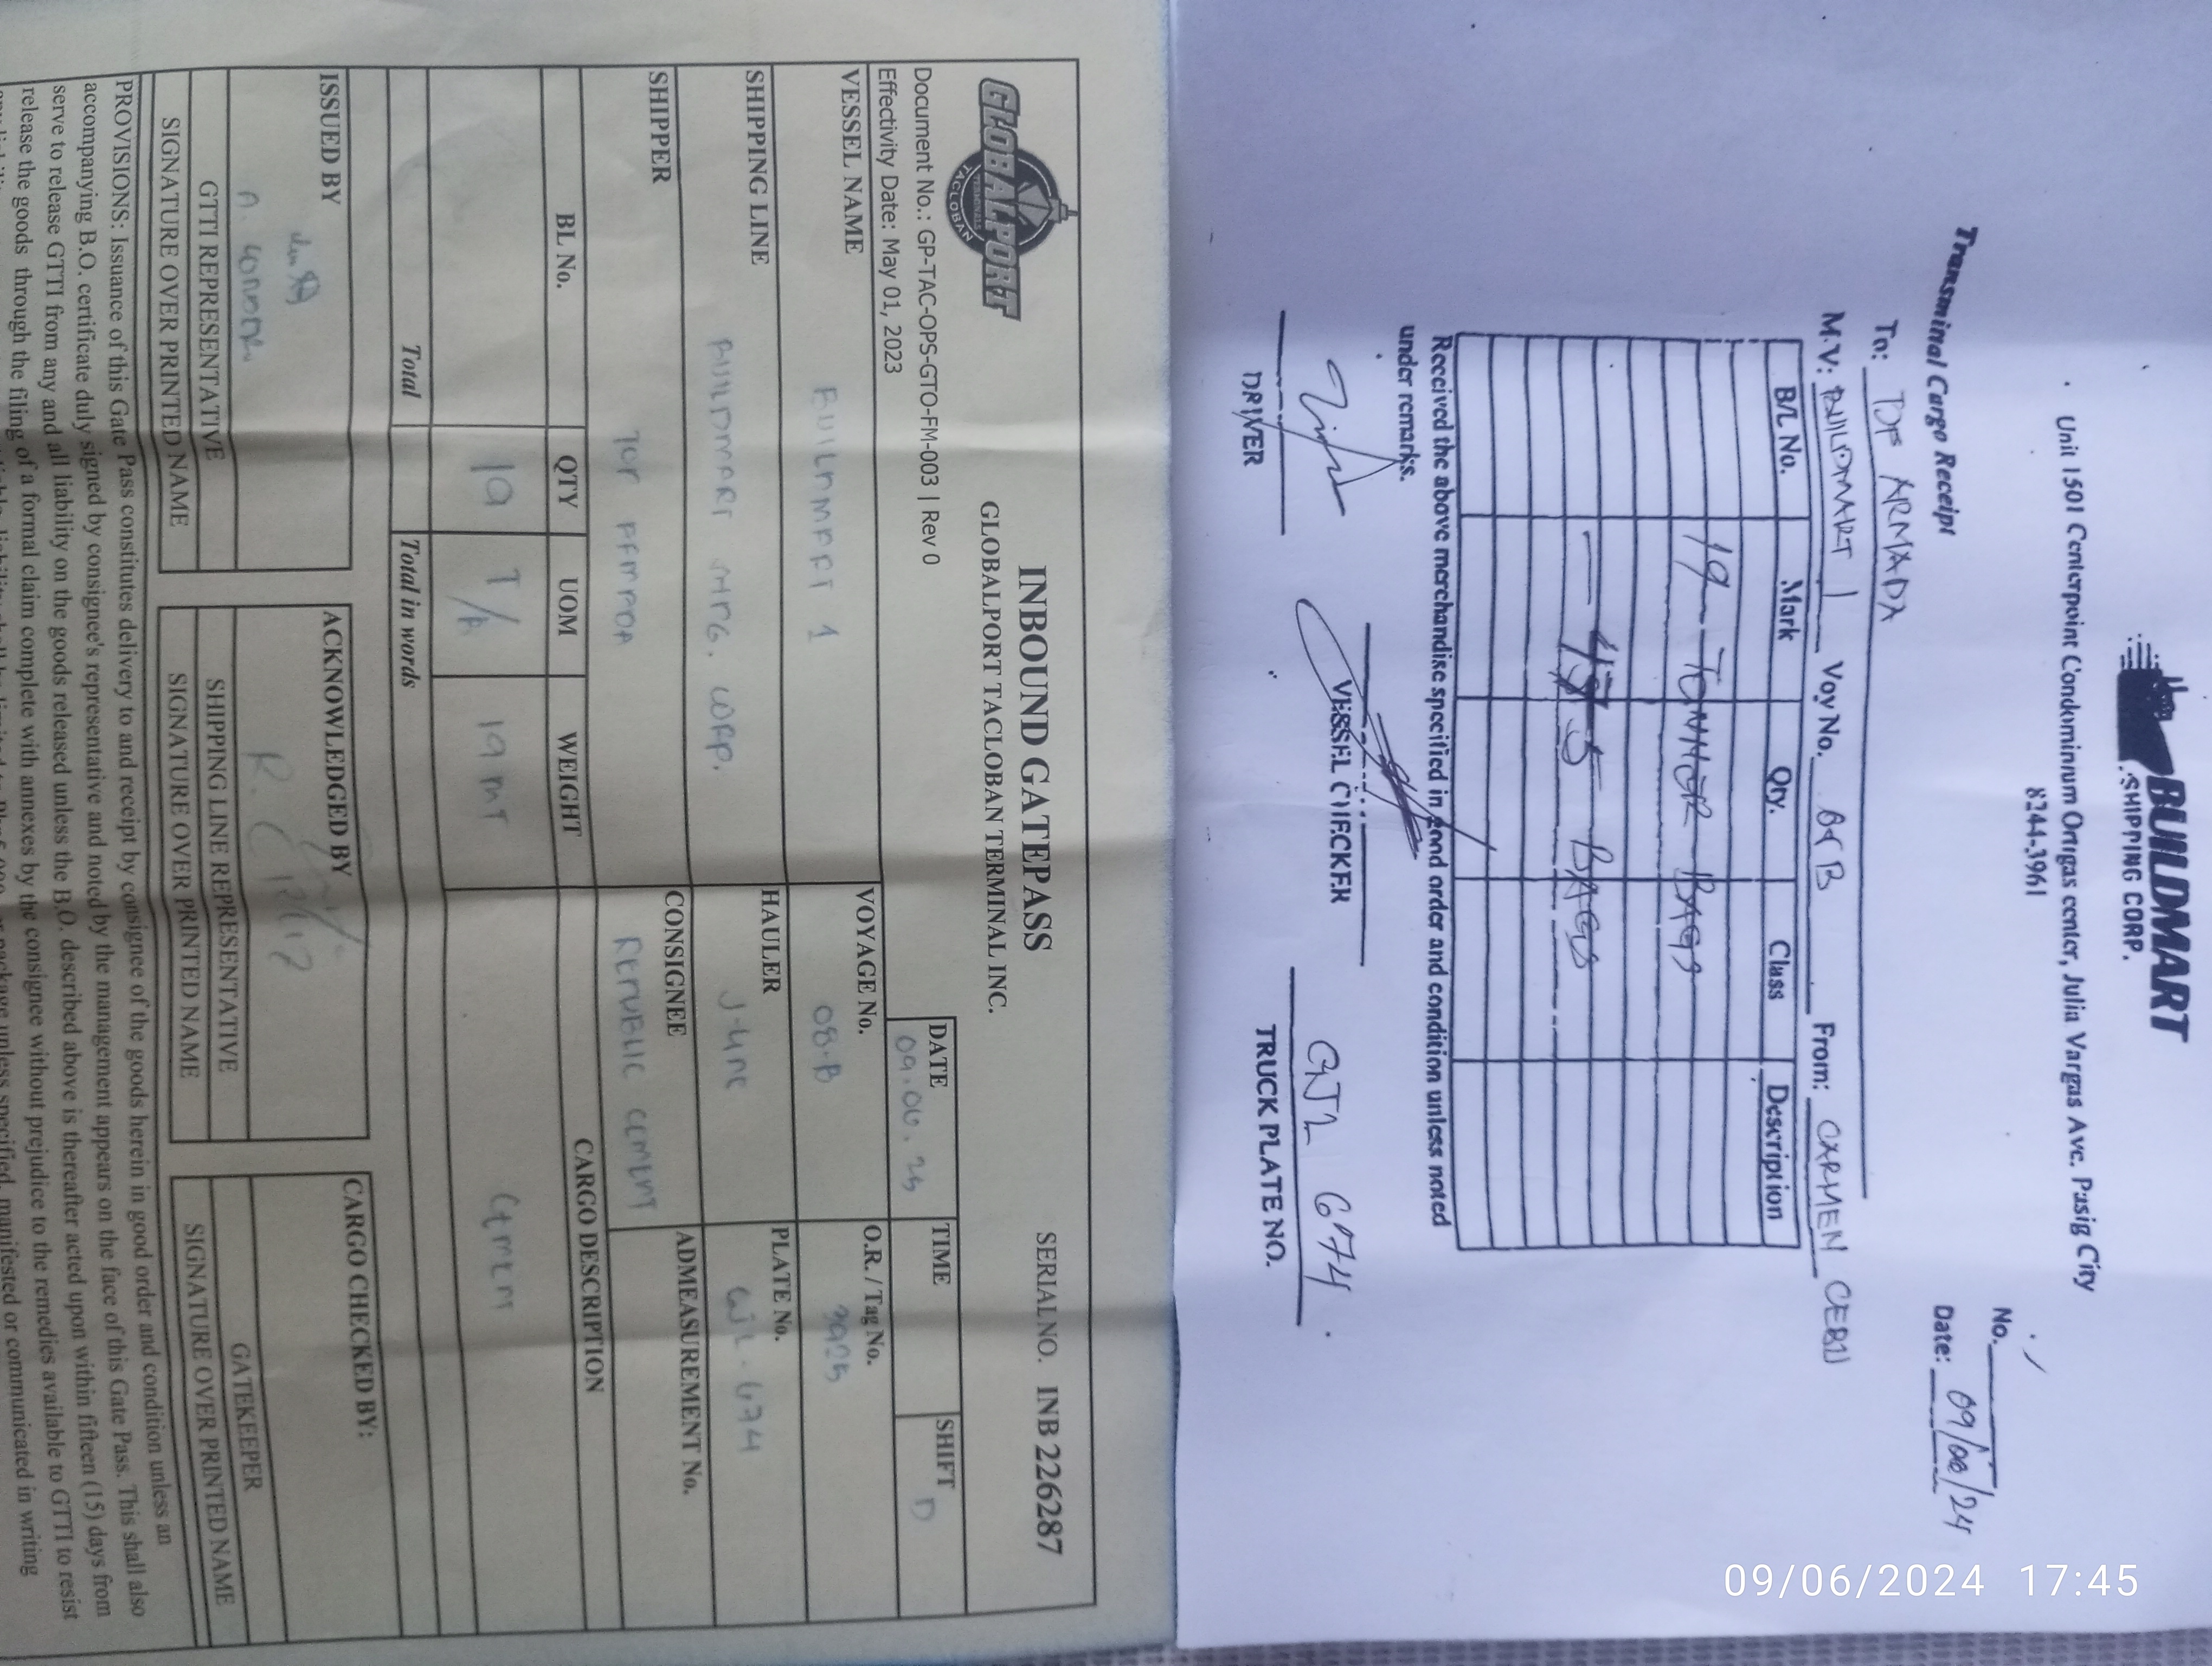 BUILDMART
SHIPPING CORP.
Unit 1501 Centerpoint Condominium Ortigas center, Julia Vargas Ave. Pasig City
8244-3961
No.
Transminal Cargo Receipt
Date: 09/06/24
To: DF ARMADA
M.V: BUILDMART 1 Voy No. 8B From: CARMEN CEBU
B/L No. Mark Qty. Class Description
19 - TONNER BAGS
475 BAGS
Received the above merchandise specified in good order and condition unless noted
under remarks.
DRIVER
VESSEL CHECKER
GJL 674
TRUCK PLATE NO.
GLOBALPORT
TERMINALS
TACLOBAN
INBOUND GATEPASS
GLOBALPORT TACLOBAN TERMINAL INC.
SERIAL NO. INB 226287
Document No.: GP-TAC-OPS-GTO-FM-003 | Rev 0
Effectivity Date: May 01, 2023
DATE TIME SHIFT
D
VESSEL NAME BUILDMART 1
VOYAGE No. 08-B
O.R. / Tag No. 3925
SHIPPING LINE BUILDMART SHPG. CORP.
HAULER
PLATE No. GJL-674
SHIPPER
CONSIGNEE REPUBLIC CEMENT
ADMEASUREMENT No.
BL No. QTY UOM WEIGHT CARGO DESCRIPTION
19 T/B 19 MT CEMENT
Total Total in words
ISSUED BY
GTTI REPRESENTATIVE
SIGNATURE OVER PRINTED NAME
ACKNOWLEDGED BY
SHIPPING LINE REPRESENTATIVE
SIGNATURE OVER PRINTED NAME
CARGO CHECKED BY:
GATEKEEPER
SIGNATURE OVER PRINTED NAME
PROVISIONS: Issuance of this Gate Pass constitutes delivery to and receipt by consignee of the goods herein in good order and condition unless an
accompanying B.O. certificate duly signed by consignee's representative and noted by the management appears on the face of this Gate Pass. This shall also
serve to release GTTI from any and all liability on the goods released unless the B.O. described above is thereafter acted upon within fifteen (15) days from
release the goods through the filing of a formal claim complete with annexes by the consignee without prejudice to the remedies available to GTTI to resist
package unless specified, manifested or communicated in writing
09/06/2024 17:45